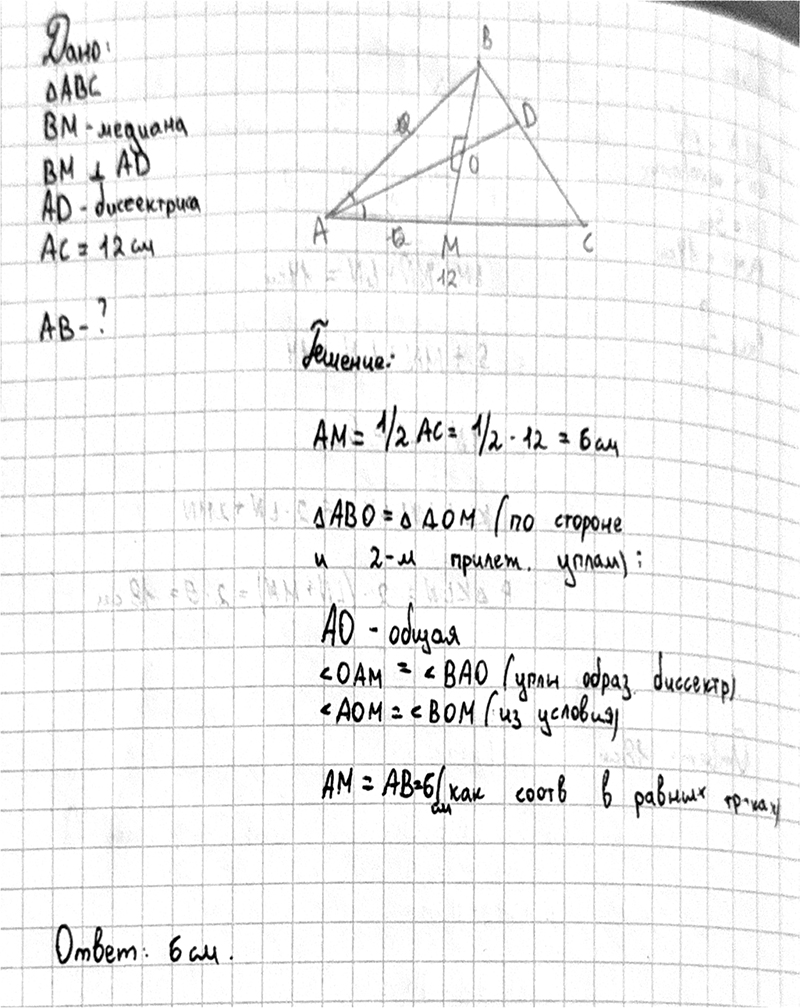 Дано:
△ABC
BM - медиана
BM ⊥ AD
AD - биссектриса
AC = 12 см
AB - ?
B
D
O
A
M
C
12
Решение:
AM = 1/2 AC = 1/2 · 12 = 6 см
△ABO = △AOM (по стороне
и 2-м прилеж. углам):
AO - общая
<OAM = <BAO (углы образ. биссектр)
<AOM = <BOM (из условия)
AM = AB = 6 см (как соотв в равных тр-ках)
Ответ: 6 см.